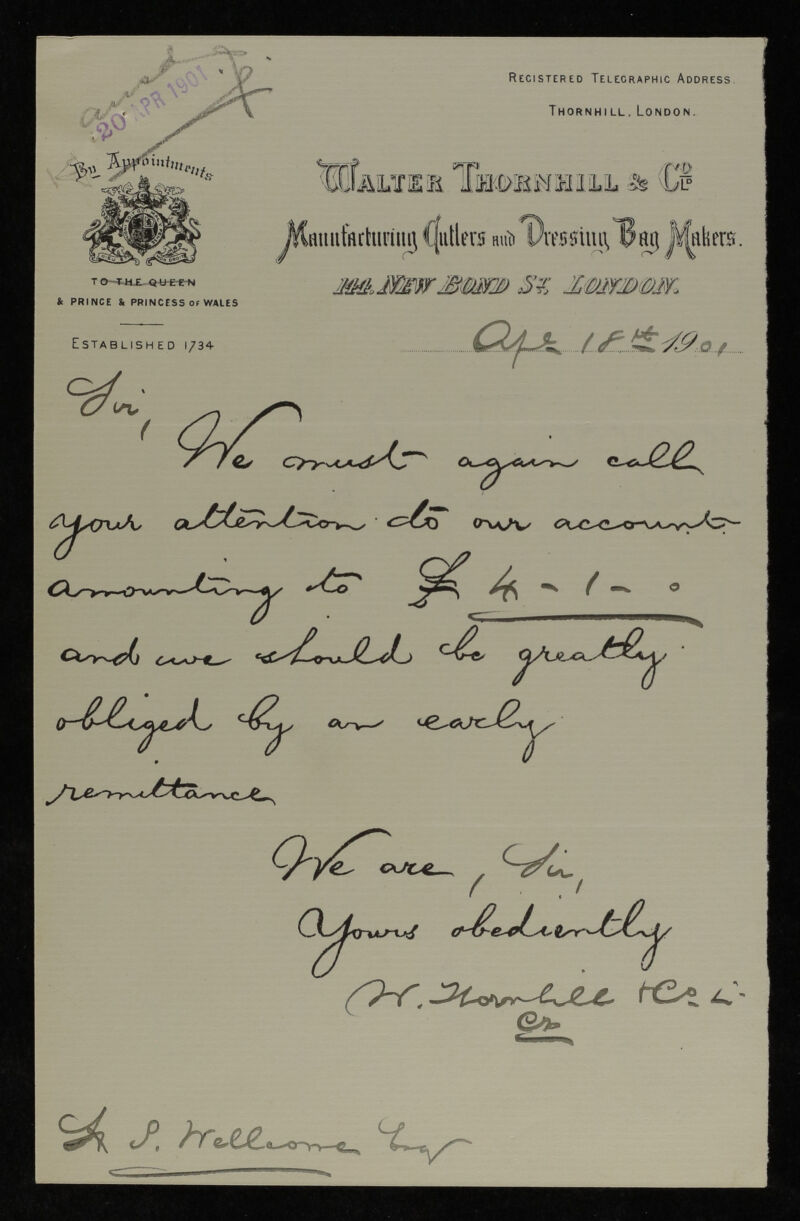 ansd
20 APR 1901
REGISTERED TELEGRAPHIC ADDRESS.
THORNHILL, LONDON.
By Appointments
TO THE QUEEN
& PRINCE & PRINCESS OF WALES
ESTABLISHED 1734
WALTER THORNHILL & CO LD
Manufacturing Cutlers and Dressing Bag Makers.
144, NEW BOND ST. LONDON.
Apr 18th 1901
Sir,
We must again call
your attention to our account
amounting to £ 4 - 1 - 0
and we should be greatly
obliged by an early
remittance
We are, Sir,
Yours obediently
W. Thornhill & Co L
S. Wellcome Esq